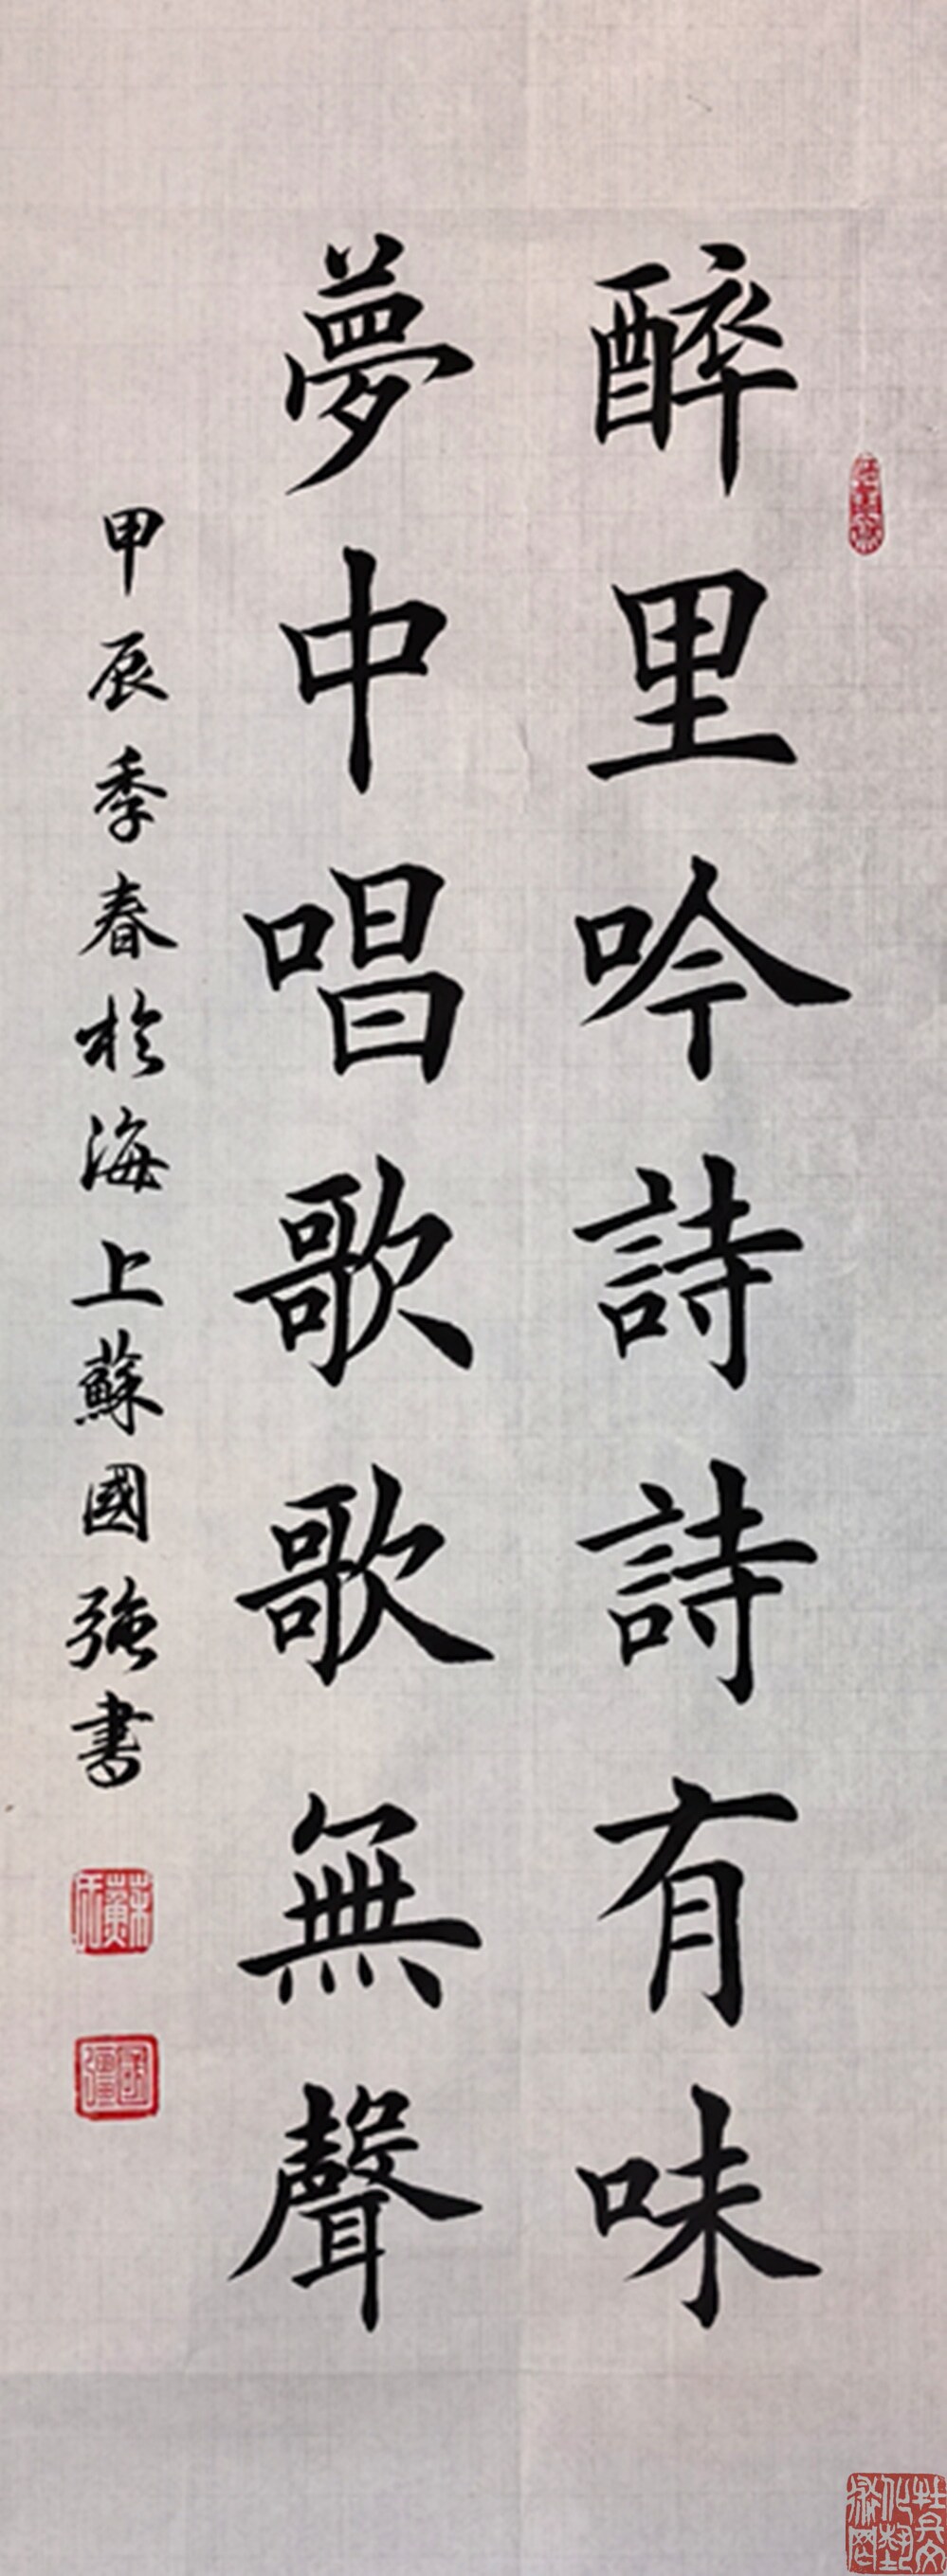 醉里吟詩詩有味
夢中唱歌歌無聲
甲辰季春於海上蘇國強書